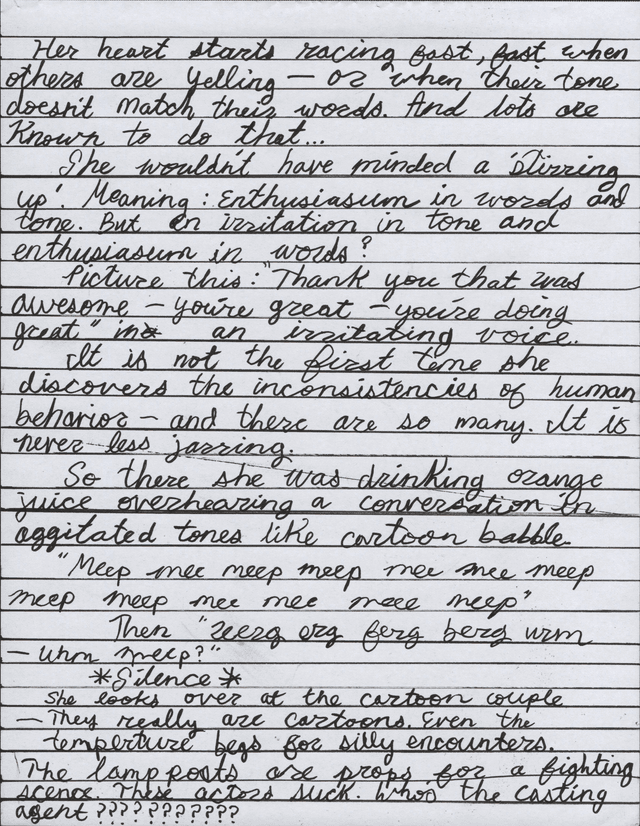 Her heart starts racing fast, fast when
others are yelling — or when their tone
doesn't match their words. And lots are
known to do that...
She wouldn't have minded a 'stirring
up'. Meaning: Enthusiasum in words and
tone. But an irritation in tone and
enthusiasum in words?
Picture this: "Thank you that was
awesome — you're great — you're doing
great" in an irritating voice.
It is not the first time she
discovers the inconsistencies of human
behavior — and there are so many. It is
never less jarring.
So there she was drinking orange
juice overhearing a conversation in
aggitated tones like cartoon babble.
"Meep mee meep meep mee mee meep
meep meep mee mee meee meep"
Then "zeerg erg ferg berg urm
— urm meep?"
*Silence*
She looks over at the cartoon couple
— They really are cartoons. Even the
temperture begs for silly encounters.
The lamp posts are props for a fighting
scence. These actors suck. Who's the casting
agent ???????????